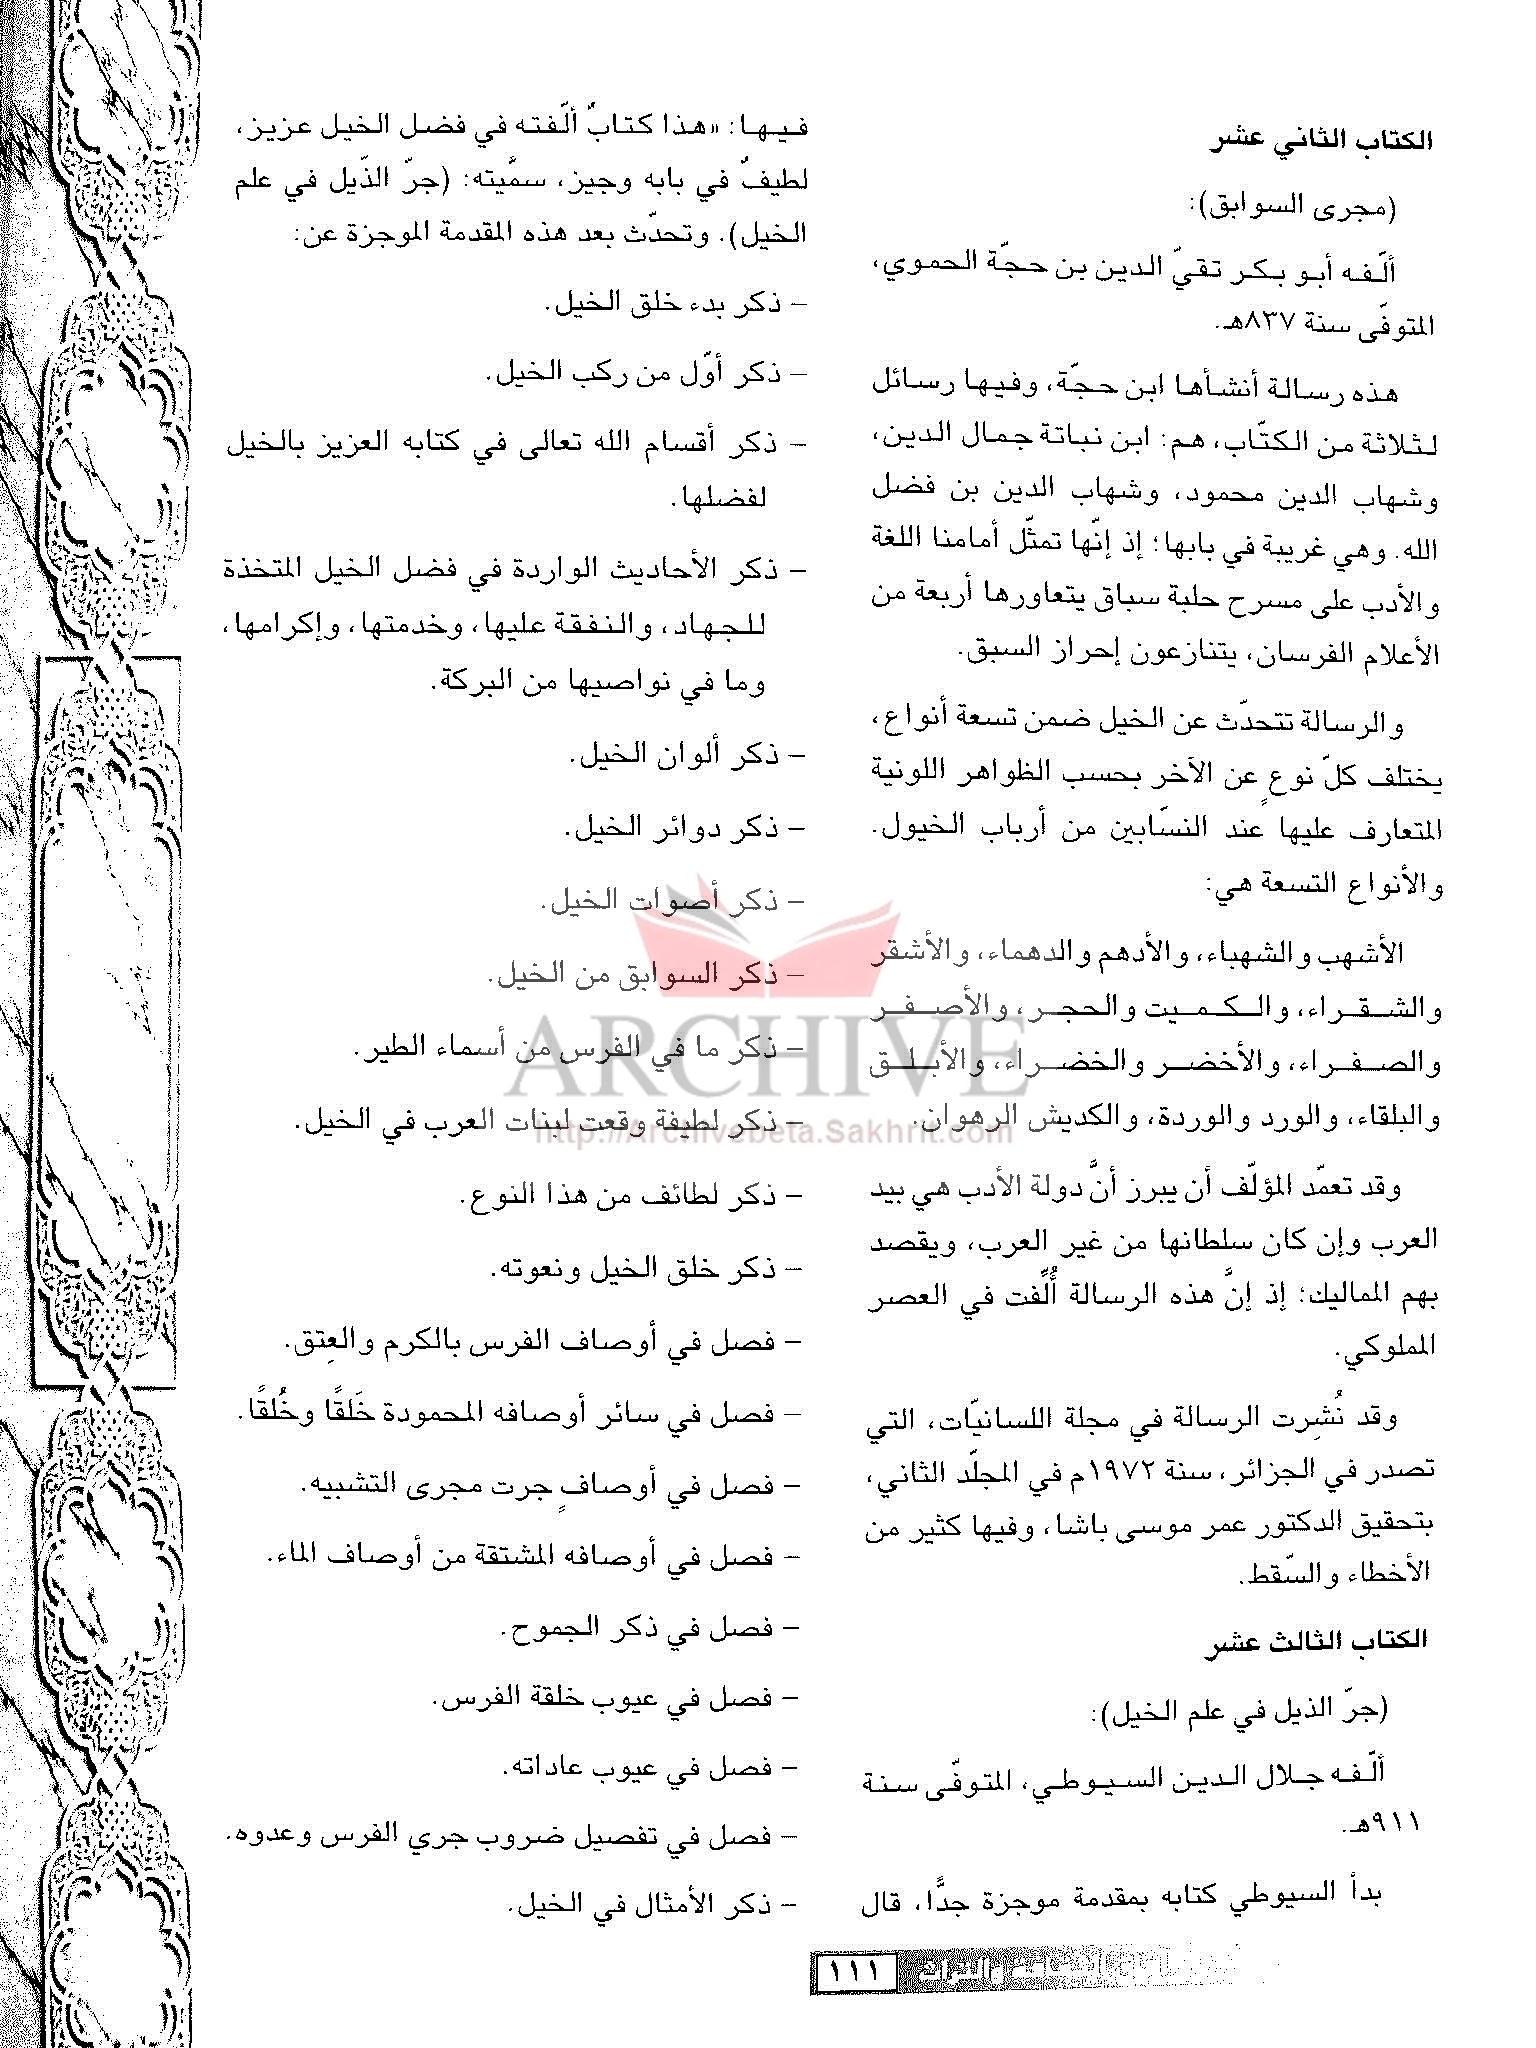 الكتاب الثاني عشر
(مجرى السوابق):
ألّفه أبو بكر تقيّ الدين بن حجّة الحموي،
المتوفّى سنة ٨٣٧هـ.
هذه رسالة أنشأها ابن حجّة، وفيها رسائل
لثلاثة من الكتّاب، هم: ابن نباتة جمال الدين،
وشهاب الدين محمود، وشهاب الدين بن فضل
الله. وهي غريبة في بابها؛ إذ إنّها تمثّل أمامنا اللغة
والأدب على مسرح حلبة سباق يتعاورها أربعة من
الأعلام الفرسان، يتنازعون إحراز السبق.
والرسالة تتحدّث عن الخيل ضمن تسعة أنواع،
يختلف كلّ نوعٍ عن الآخر بحسب الظواهر اللونية
المتعارف عليها عند النسّابين من أرباب الخيول.
والأنواع التسعة هي:
الأشهب والشهباء، والأدهم والدهماء، والأشقر
والشـقـراء، والـكـمـيت والحجـر، والأصـفـر
والصـفـراء، والأخضـر والخضـراء، والأبـلـق
والبلقاء، والورد والوردة، والكديش الرهوان.
وقد تعمّد المؤلّف أن يبرز أنَّ دولة الأدب هي بيد
العرب وإن كان سلطانها من غير العرب، ويقصد
بهم المماليك؛ إذ إنَّ هذه الرسالة أُلِّفت في العصر
المملوكي.
وقد نُشِرت الرسالة في مجلة اللسانيّات، التي
تصدر في الجزائر، سنة ١٩٧٢م في المجلّد الثاني،
بتحقيق الدكتور عمر موسى باشا، وفيها كثير من
الأخطاء والسّقط.
الكتاب الثالث عشر
(جرّ الذيل في علم الخيل):
ألّفه جلال الدين السيوطي، المتوفّى سنة
٩١١هـ.
بدأ السيوطي كتابه بمقدمة موجزة جدًّا، قال
فيها: «هذا كتابٌ ألّفته في فضل الخيل عزيز،
لطيفٌ في بابه وجيز، سمَّيته: (جرّ الذّيل في علم
الخيل). وتحدّث بعد هذه المقدمة الموجزة عن:
– ذكر بدء خلق الخيل.
– ذكر أوّل من ركب الخيل.
– ذكر أقسام الله تعالى في كتابه العزيز بالخيل
لفضلها.
– ذكر الأحاديث الواردة في فضل الخيل المتخذة
للجهاد، والنفقة عليها، وخدمتها، وإكرامها،
وما في نواصيها من البركة.
– ذكر ألوان الخيل.
– ذكر دوائر الخيل.
– ذكر أصوات الخيل.
– ذكر السوابق من الخيل.
– ذكر ما في الفرس من أسماء الطير.
– ذكر لطيفة وقعت لبنات العرب في الخيل.
– ذكر لطائف من هذا النوع.
– ذكر خلق الخيل ونعوته.
– فصل في أوصاف الفرس بالكرم والعِتق.
– فصل في سائر أوصافه المحمودة خَلقًا وخُلقًا.
– فصل في أوصافٍ جرت مجرى التشبيه.
– فصل في أوصافه المشتقة من أوصاف الماء.
– فصل في ذكر الجموح.
– فصل في عيوب خلقة الفرس.
– فصل في عيوب عاداته.
– فصل في تفصيل ضروب جري الفرس وعدوه.
– ذكر الأمثال في الخيل.
ARCHIVE
http://archivebeta.Sakhrit.com
والتراث
١١١